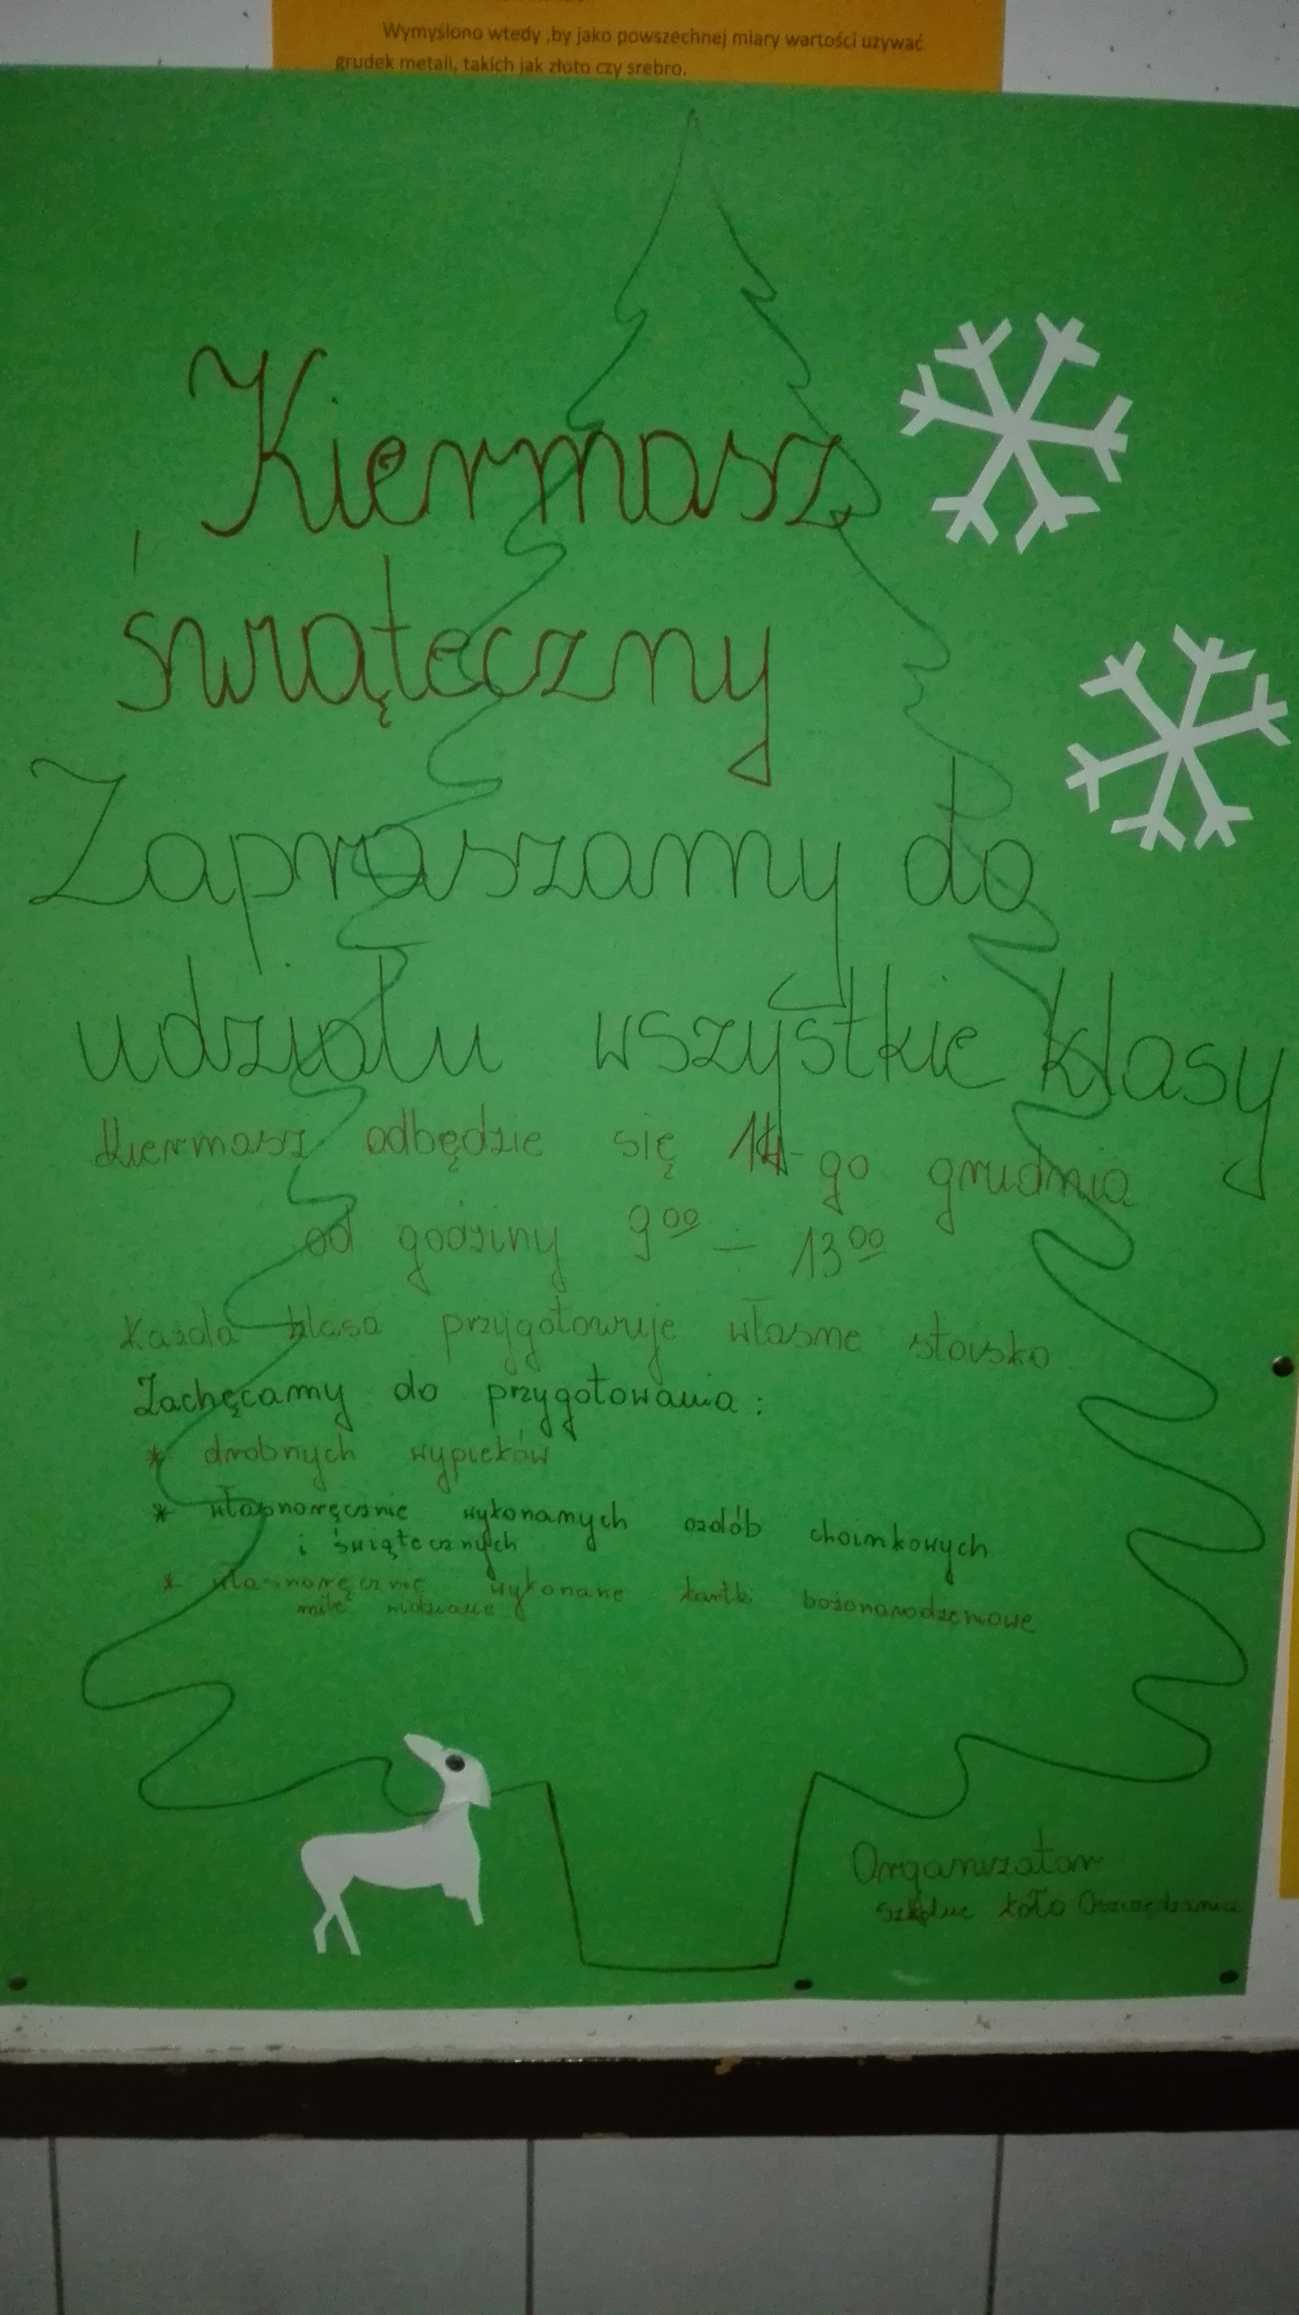 Wymyślono wtedy ,by jako powszechnej miary wartości używać
grudek metali, takich jak złoto czy srebro.
Kiermasz
świąteczny
Zapraszamy do
udziału wszystkie klasy
Kiermasz odbędzie się 14-go grudnia
od godziny 9⁰⁰ – 13⁰⁰
Każda klasa przygotowuje własne stoisko
Zachęcamy do przygotowania:
* drobnych wypieków
* własnoręcznie wykonanych ozdób choinkowych
i świątecznych
* własnoręcznie wykonane kartki bożonarodzeniowe
mile widziane
Organizator
szkolne koło Oszczędzania